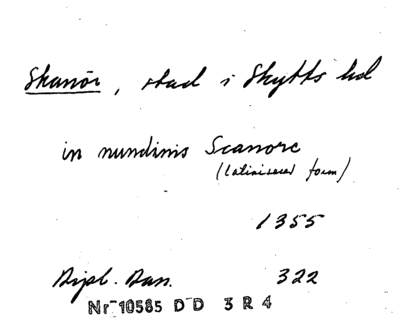 Skanör, stad i Skytts hd
in nundinis Scanore
(latiniserad form)
1355
Dipl. Dan. 322
Nr 10585 D D 3 R 4